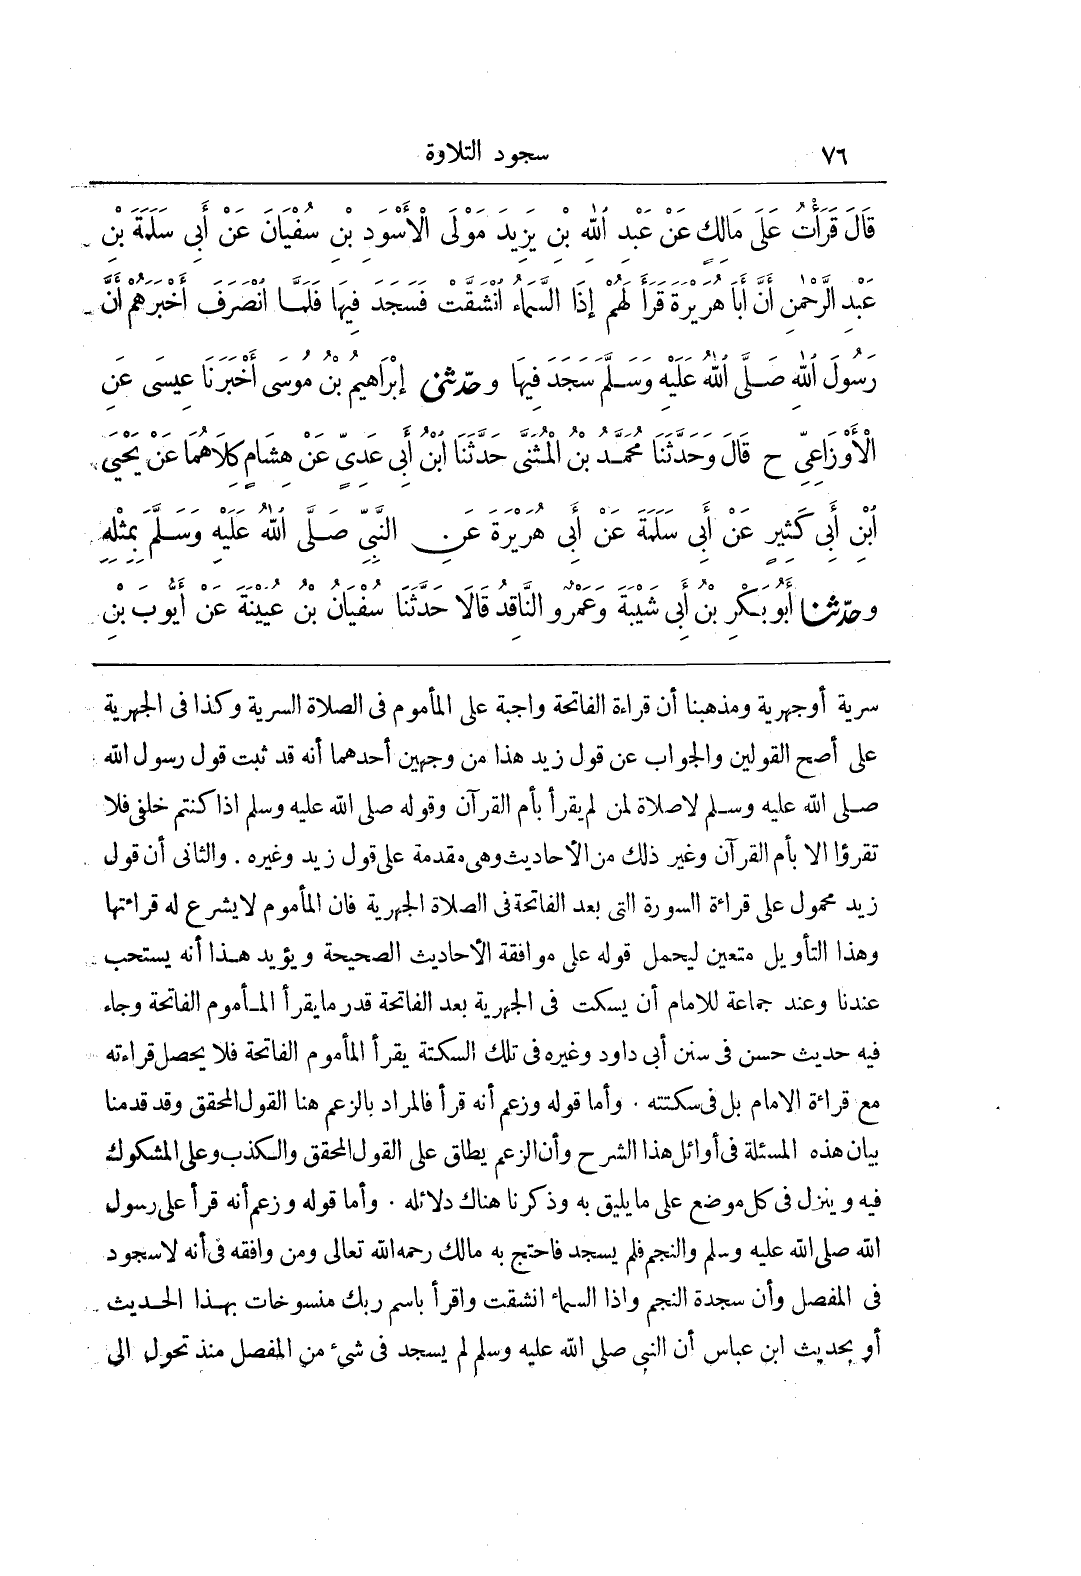 ٧٦ سجود التلاوة
قَالَ قَرَأْتُ عَلَى مَالِكٍ عَنْ عَبْدِ ٱللهِ بْنِ يَزِيدَ مَوْلَى الْأَسْوَدِ بْنِ سُفْيَانَ عَنْ أَبِي سَلَمَةَ بْنِ
عَبْدِ الرَّحْمٰنِ أَنَّ أَبَا هُرَيْرَةَ قَرَأَ لَهُمْ إِذَا السَّمَاءُ ٱنْشَقَّتْ فَسَجَدَ فِيهَا فَلَمَّا ٱنْصَرَفَ أَخْبَرَهُمْ أَنَّ
رَسُولَ ٱللهِ صَلَّى ٱللهُ عَلَيْهِ وَسَلَّمَ سَجَدَ فِيهَا وحدثنى إِبْرَاهِيمُ بْنُ مُوسَى أَخْبَرَنَا عِيسَى عَنِ
الْأَوْزَاعِيِّ ح قَالَ وَحَدَّثَنَا مُحَمَّدُ بْنُ الْمُثَنَّى حَدَّثَنَا ٱبْنُ أَبِي عَدِيٍّ عَنْ هِشَامٍ كِلَاهُمَا عَنْ يَحْيَى
ٱبْنِ أَبِي كَثِيرٍ عَنْ أَبِي سَلَمَةَ عَنْ أَبِي هُرَيْرَةَ عَنِ النَّبِيِّ صَلَّى ٱللهُ عَلَيْهِ وَسَلَّمَ بِمِثْلِهِ
وحدثنا أَبُو بَكْرِ بْنُ أَبِي شَيْبَةَ وَعَمْرٌو النَّاقِدُ قَالَا حَدَّثَنَا سُفْيَانُ بْنُ عُيَيْنَةَ عَنْ أَيُّوبَ بْنِ
سرية أوجهرية ومذهبنا أن قراءة الفاتحة واجبة على المأموم فى الصلاة السرية وكذا فى الجهرية
على أصح القولين والجواب عن قول زيد هذا من وجهين أحدهما أنه قد ثبت قول رسول الله
صلى الله عليه وسلم لاصلاة لمن لم يقرأ بأم القرآن وقوله صلى الله عليه وسلم اذا كنتم خلفى فلا
تقرؤا الا بأم القرآن وغير ذلك من الأحاديث وهى مقدمة على قول زيد وغيره . والثانى أن قول
زيد محمول على قراءة السورة التى بعد الفاتحة فى الصلاة الجهرية فان المأموم لايشرع له قراءتها
وهذا التأويل متعين ليحمل قوله على موافقة الأحاديث الصحيحة ويؤيد هذا أنه يستحب
عندنا وعند جماعة للامام أن يسكت فى الجهرية بعد الفاتحة قدر مايقرأ المأموم الفاتحة وجاء
فيه حديث حسن فى سنن أبى داود وغيره فى تلك السكتة يقرأ المأموم الفاتحة فلا يحصل قراءته
مع قراءة الامام بل فى سكتته . وأما قوله وزعم أنه قرأ فالمراد بالزعم هنا القول المحقق وقد قدمنا
بيان هذه المسئلة فى أوائل هذا الشرح وأن الزعم يطلق على القول المحقق والكذب وعلى المشكوك
فيه وينزل فى كل موضع على مايليق به وذكرنا هناك دلائله . وأما قوله وزعم أنه قرأ على رسول
الله صلى الله عليه وسلم والنجم فلم يسجد فاحتج به مالك رحمه الله تعالى ومن وافقه فى أنه لاسجود
فى المفصل وأن سجدة النجم واذا السماء انشقت واقرأ باسم ربك منسوخات بهذا الحديث
أو بحديث ابن عباس أن النبى صلى الله عليه وسلم لم يسجد فى شىء من المفصل منذ تحول الى